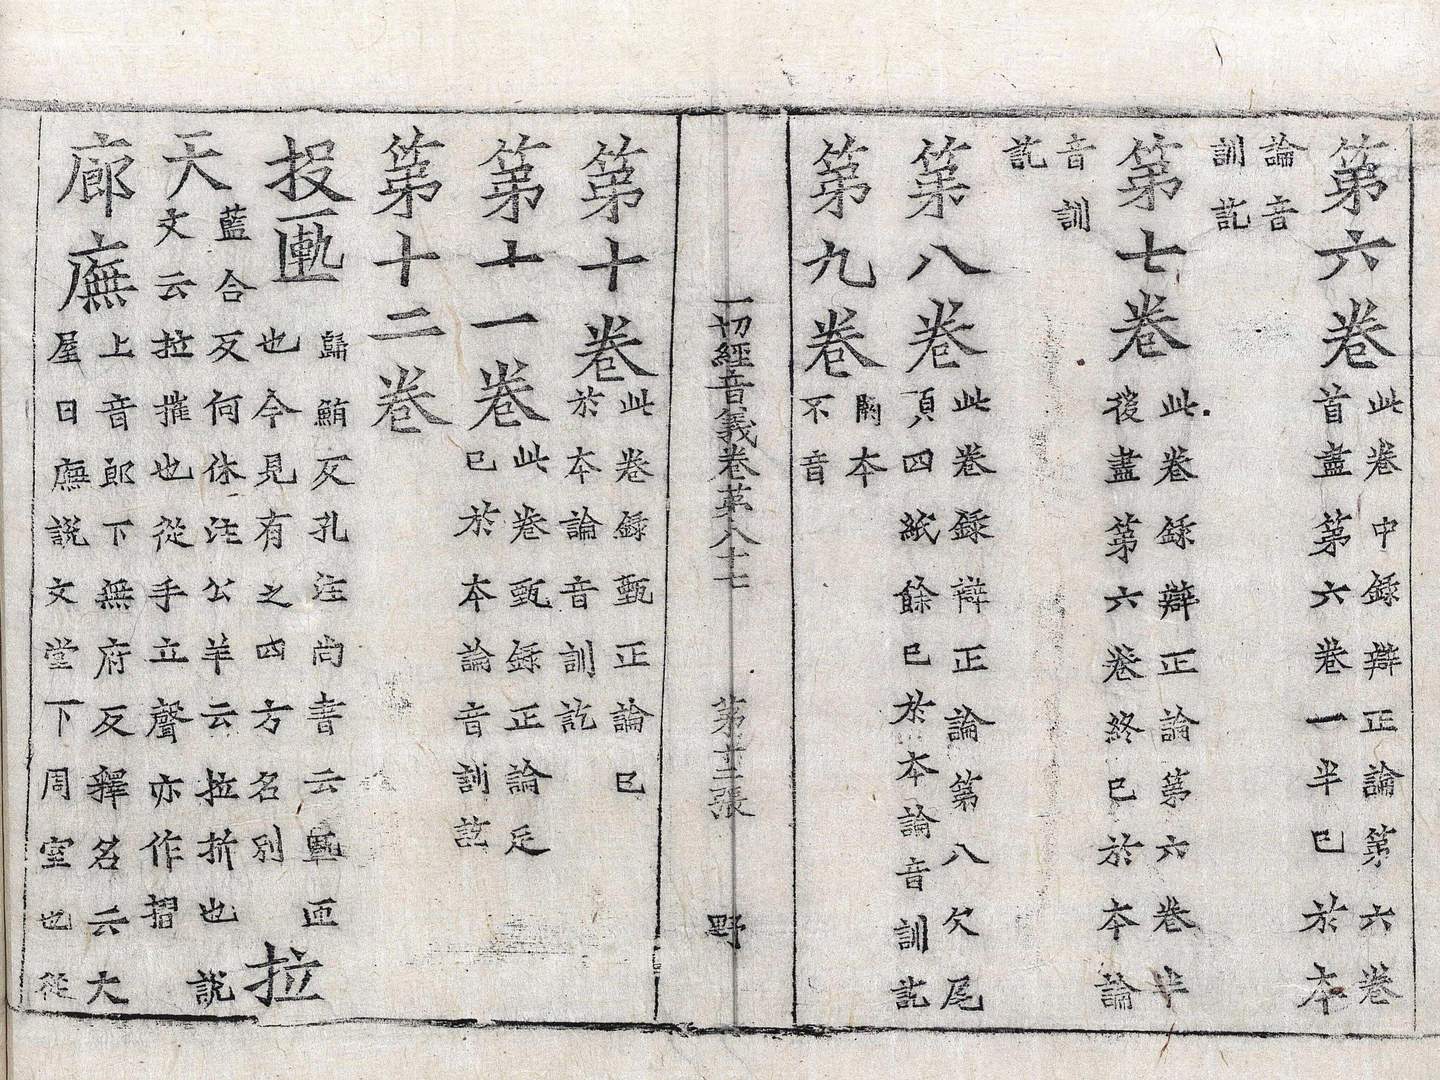 第六卷
此卷中録辯正論第六卷
首盡第六卷一半已於本
論音
訓訖
第七卷
此卷録辯正論第六卷半
後盡第六卷終已於本論
音訓
訖
第八卷
此卷録辯正論第八欠尾
頁四紙餘已於本論音訓訖
第九卷
闕本
不音
一切經音義卷苐八十七 第十二張 野
第十卷
此卷録甄正論已
於本論音訓訖
第十一卷
此卷甄録正論足
已於本論音訓訖
第十二卷
投匭
歸鮪反孔注尚書云匭匣
也今見有之四方名別
拉
天
藍合反何休注公羊云拉折也說
文云拉摧也從手立聲亦作摺
廊廡
上音郎下無府反釋名云大
屋曰廡說文堂下周室也從